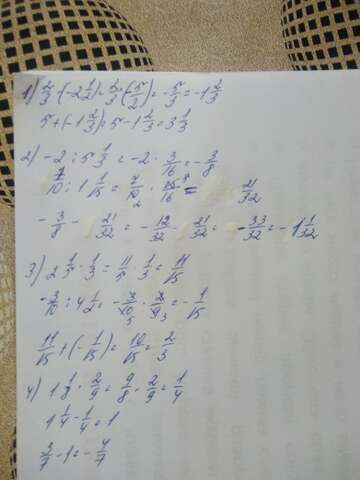 1) 2/3 · (-2 1/2) = 2/3 · (-5/2) = -5/3 = -1 2/3
5 + (-1 2/3) = 5 - 1 2/3 = 3 1/3
2) -2 : 5 1/3 = -2 · 3/16 = -3/8
7/10 : 1 1/15 = 7/10 · 15/16 = 21/32
-3/8 - 21/32 = -12/32 - 21/32 = -33/32 = -1 1/32
3) 2 1/5 · 1/3 = 11/5 · 1/3 = 11/15
-3/10 : 4 1/2 = -3/10 · 2/9 = -1/15
11/15 + (-1/15) = 10/15 = 2/3
4) 1 1/8 · 2/9 = 9/8 · 2/9 = 1/4
1 1/4 - 1/4 = 1
3/7 - 1 = -4/7